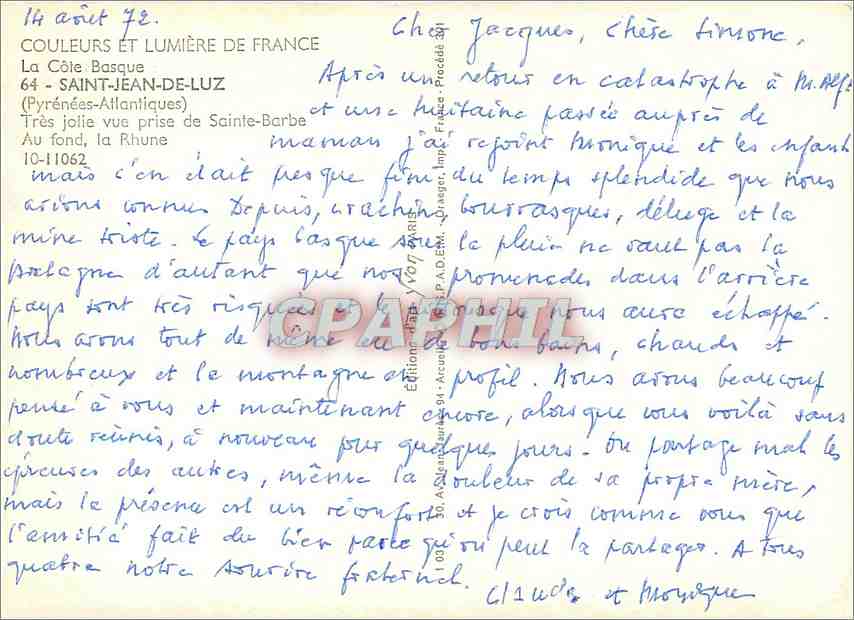 14 août 72.
COULEURS ET LUMIÈRE DE FRANCE
La Côte Basque
64 - SAINT-JEAN-DE-LUZ
(Pyrénées-Atlantiques)
Très jolie vue prise de Sainte-Barbe
Au fond, la Rhune
10-11062
Cher Jacques, Chère Simone,
Après un retour en catastrophe à
et une huitaine passée auprès de
maman j'ai rejoint Monique et les enfants
mais c'en était presque fini du temps splendide que nous
avions connu. Depuis, crachin, bourrasques, déluge et la
mine triste. Le pays basque sous la pluie ne vaut pas la
Bretagne d'autant que nos promenades dans l'arrière
pays sont très risquées et le pittoresque nous aura échappé.
Nous avons tout de même eu de bons bains, chauds et
nombreux et la montagne en profil. Nous avons beaucoup
pensé à vous et maintenant encore, alors que vous voilà sans
doute réunis, à nouveau pour quelques jours. On partage mal les
épreuves des autres, même la douleur de sa propre mère,
mais la présence est un réconfort et je crois comme vous que
l'amitié fait du bien parce qu'on peut la partager. A tous
quatre notre sourire fraternel.
Claude et Monique
Éditions d'art YVON PARIS
30, Av. Jean-Jaurès 94 - Arcueil - S.P.A.D.E.M. - Draeger, Imp. France - Procédé 301
CPAPHIL